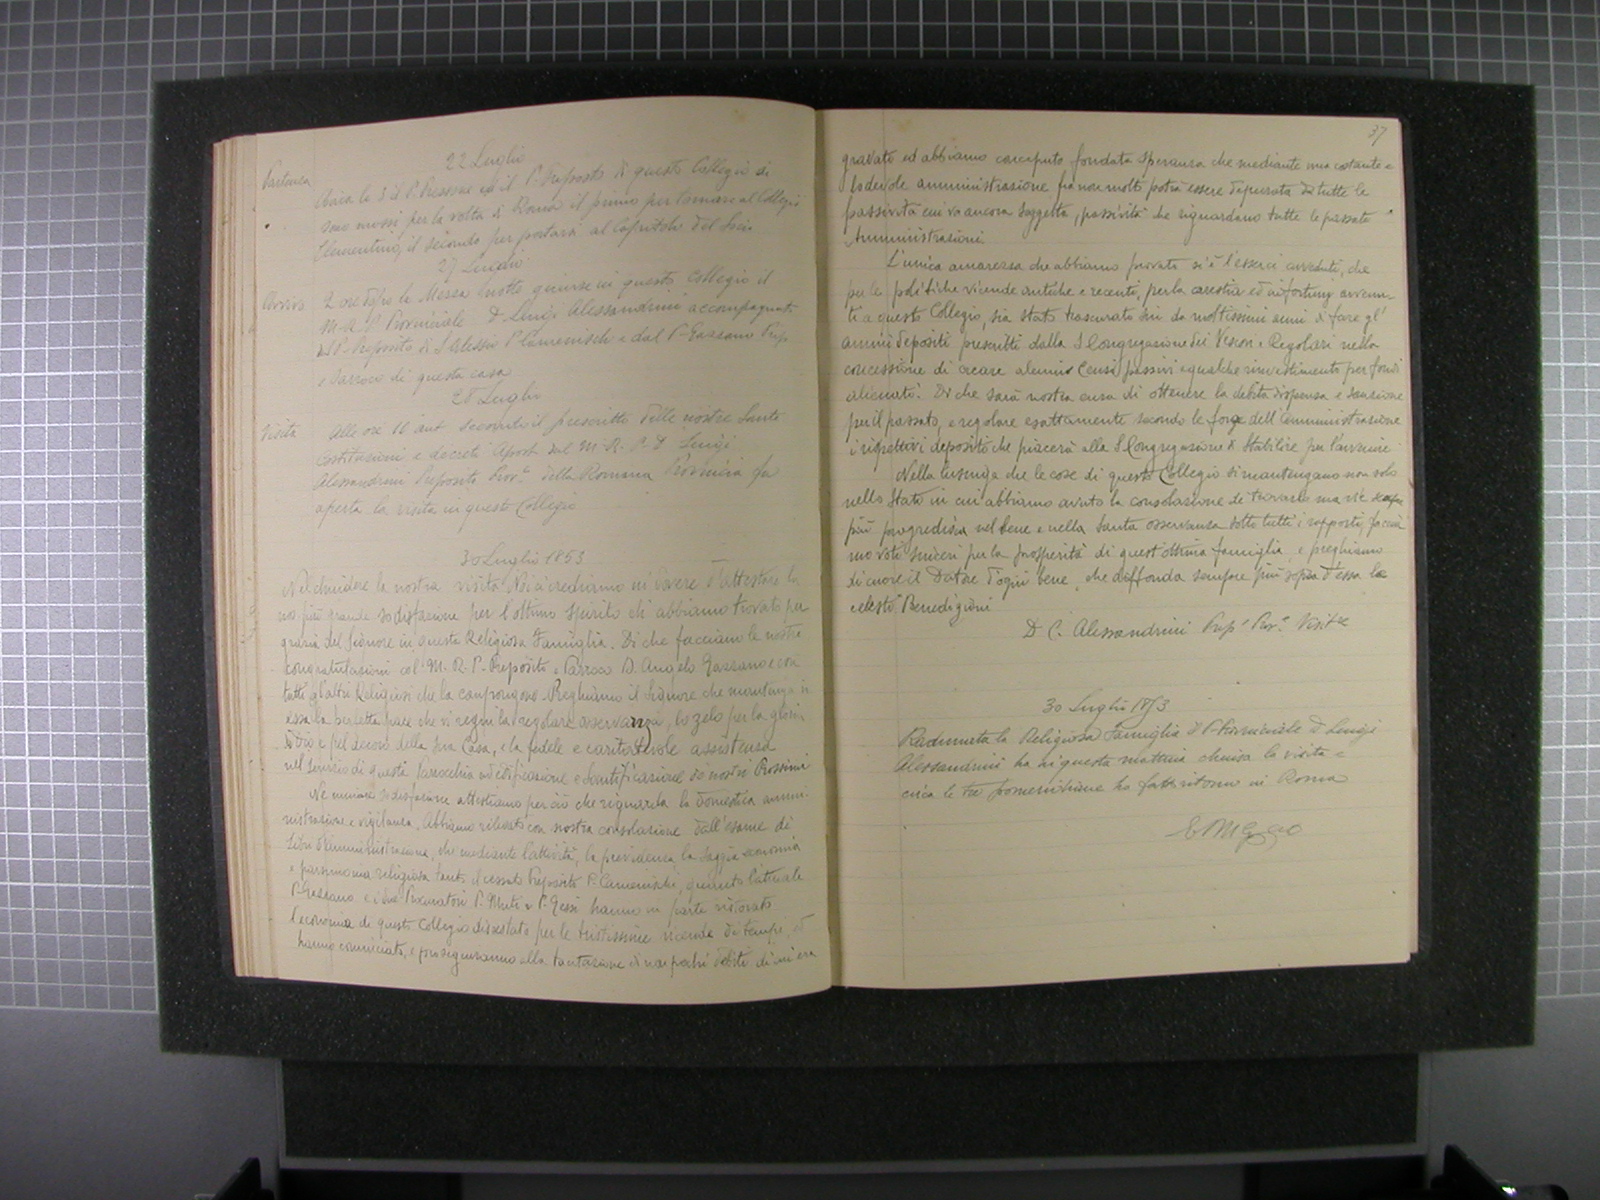 22 Luglio
Partenza
Circa le 3 il P. Pressone ed il P. Preposto di questo Collegio si
sono mossi per la volta di Roma il primo per tornare al Collegio
Clementino, il secondo per portarsi al Capitolo del Socio
27 Luglio
Arrivo
2 ore dopo la Mezza notte giunse in questo Collegio il
M. R. P. Provinciale D. Luigi Alessandrini accompagnato
dal P. Preposito di S. Alessio P. Camenisch e dal P. Gassano Prep
e Parroco di questa casa
28 Luglio
Visita
Alle ore 10 ant. secondo il prescritto delle nostre Sante
Costituzioni e decreti Apost. dal M. R. P. D. Luigi
Alessandrini Preposito Prov.le della Romana Provincia fu
aperta la visita in questo Collegio
30 Luglio 1853
Nel chiudere la nostra visita Noi crediamo in dovere d'attestare la
nos. più grande sodisfazione per l'ottimo spirito che abbiamo trovato per
grazia del Signore in questa Religiosa Famiglia. Di che facciamo le nostre
congratulazioni col M. R. P. Preposito e Parroco D. Angelo Gassano e con
tutti gl'altri Religiosi che la compongono. Preghiamo il Signore che mantenga in
essa la perfetta pace che vi regni la regolare osservanza, lo zelo per la gloria
di Dio e pel decoro della sua Casa, e la fedele e caritatevole assistenza
nel servizio di questa Parrocchia ad edificazione e Santificazione de nostri Prossimi
Ne minore sodisfazione attestiamo per ciò che riguarda la domestica ammini
nistrazione e vigilanza. Abbiamo rilevato con nostra consolazione dall'esame dei
Libri d'Amministrazione, che mediante l'attività, la previdenza, la saggia economia
e parsimonia religiosa tanto il cessato Preposito P. Camenisch, quanto l'attuale
P. Gassano e i due Procuratori P. Muti e P. Gessi hanno in parte ristorato
l'economia di questo Collegio dissestato per le tristissime vicende di tempi, ed
hanno cominciato, e proseguiranno alla tantazione di non pochi debiti di cui era
37
gravato ed abbiamo concepito fondata speranza che mediante una costante e
lodevole amministrazione fra non molto potrà essere depurata da tutte le
passività cui va ancora soggetta, passività che riguardano tutte le passate
Amministrazioni.
L'unica amarezza che abbiamo provato si è l'esserci avveduti, che
per le politiche vicende antiche e recenti, per la carestia ed infortunj avvenu-
ti a questo Collegio, sia stato trascurato sin da moltissimi anni di fare gl'
annui depositi prescritti dalla S. Congregazione dei Vescovi e Regolari nella
concessione di creare alcuni Censi passivi e qualche rinvestimento per fondi
alienati. Di che sarà nostra cura di ottenere la debita dispensa e sanzione
per il passato, e regolare esattamente secondo le forze dell'amministrazione
i rispettivi depositi che piacerà alla S. Congregazione di stabilire per l'avvenire
Nella lusinga che le cose di questo Collegio si mantengano non solo
nello Stato in cui abbiamo avuto la consolazione di trovarlo ma vie sempre
più progredisca nel bene e nella Santa osservanza sotto tutti i rapporti, faccia
mo voti sinceri per la prosperità di quest'ottima famiglia e preghiamo
di cuore il Datore d'ogni bene, che diffonda sempre più sopra d'essa le
celesti Benedizioni
D. L. Alessandrini Prep.o Prov.le Visit.re
30 Luglio 1853
Radunata la Religiosa Famiglia il P. Provinciale D. Luigi
Alessandrini ha in questa mattina chiusa la visita e
circa le tre pomeridiane ha fatto ritorno in Roma